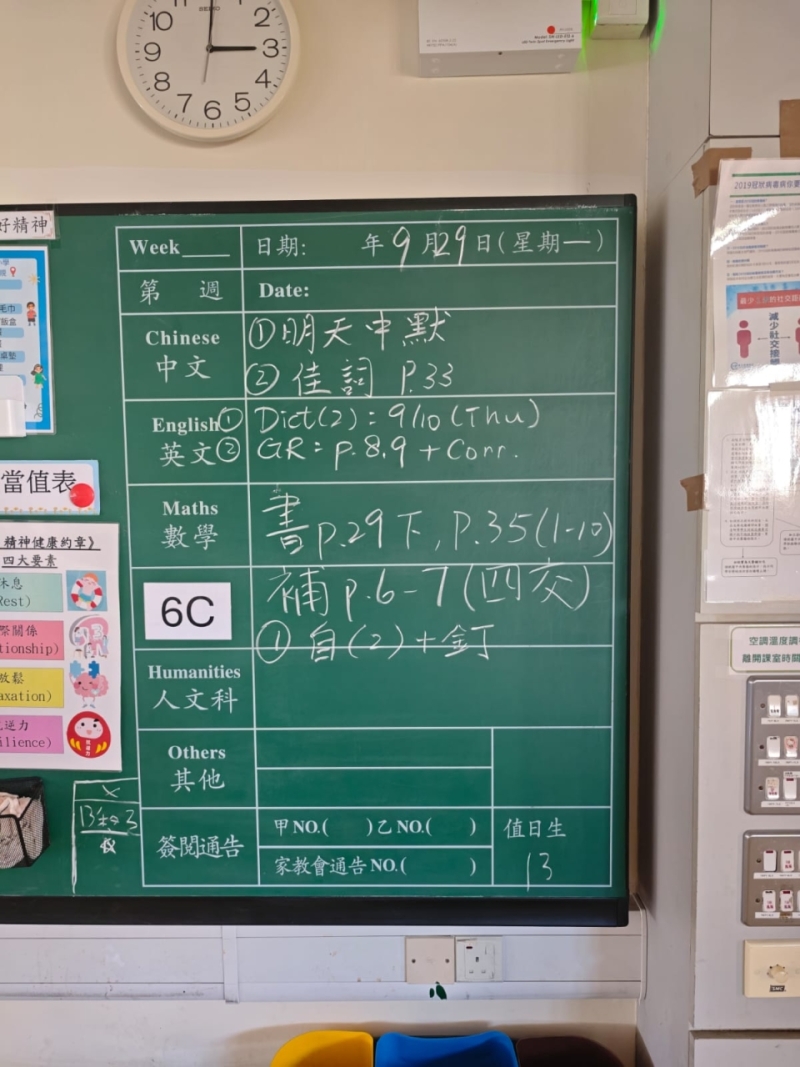 SEIKO
10 11 1 2 3 4 5 6 7 8 9
好精神
毛巾
飯盒
桌墊
當值表
精神健康約章》
四大要素
休息
Rest)
際關係
tionship)
放鬆
axation)
逆力
ilience)
Week____ 日期: 年9月29日(星期一)
第 週 Date:
Chinese 中文
①明天中默
②佳詞 P.33
English 英文
① Dict(2): 9/10 (Thu)
② GR: p.8,9 + Corr.
Maths 數學
書 p.29下, P.35(1-10)
補 p.6-7(四交)
6C
①自(2)+釘
Humanities
人文科
Others
其他
簽閱通告
甲NO.( )乙NO.( )
家教會通告NO.( )
值日生
13
減少社交接觸
空調溫度調
離開課室時關